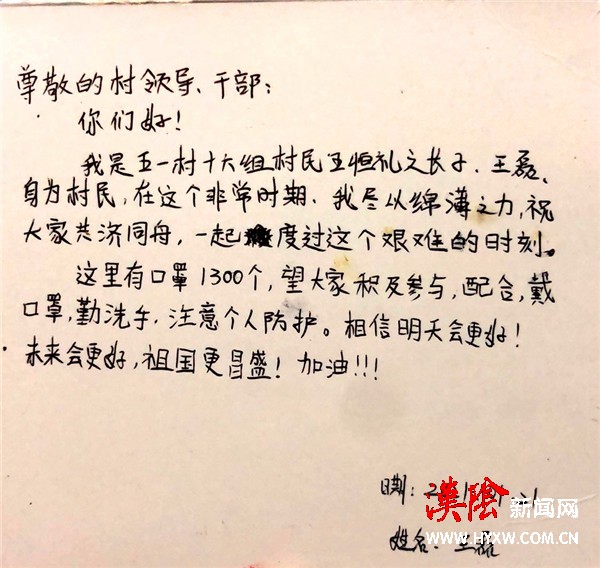 尊敬的村领导、干部:
你们好!
我是五一村十六组村民王恒礼之长子、王磊、
身为村民,在这个非常时期、我尽以绵薄之力,祝
大家共济同舟,一起度过这个艰难的时刻。
这里有口罩1300个,望大家积及参与,配合,戴
口罩,勤洗手、注意个人防护。相信明天会更好!
未来会更好,祖国更昌盛!加油!!!
日期:
漢陰新闻网
WWW.HYXW.COM.CN
姓名:王磊